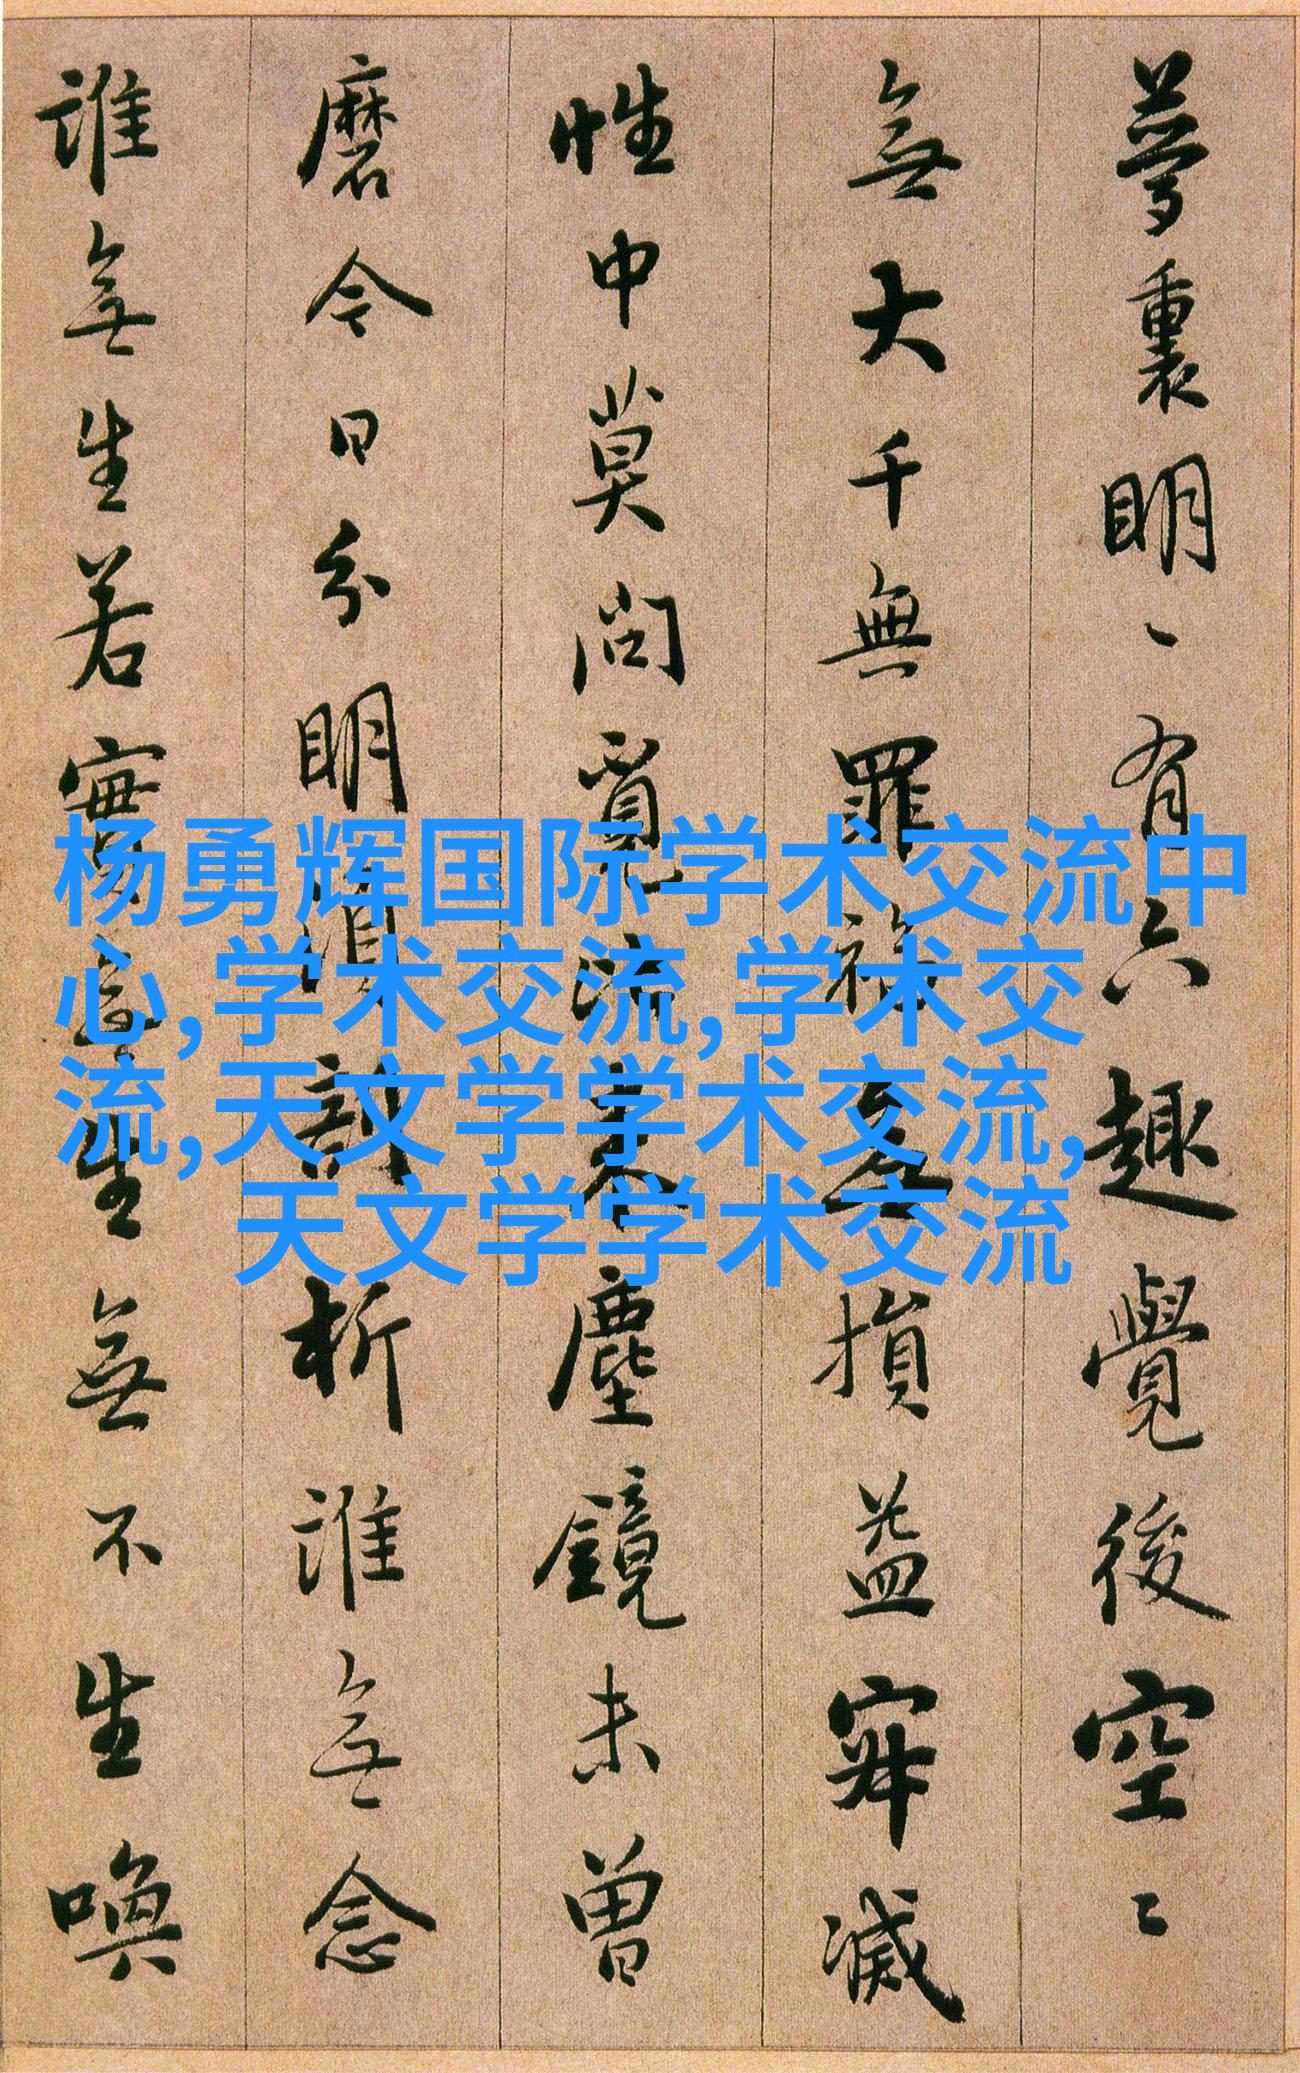 夢裏明〻有六趣覺後空〻
無大千無罪福無損益寂滅
性中莫問覓比来塵鏡未曾
磨今日分明須剖析誰無念
誰無生若實無生無不生喚
杨勇辉国际学术交流中
心,学术交流,学术交
流,天文学学术交流,
天文学学术交流